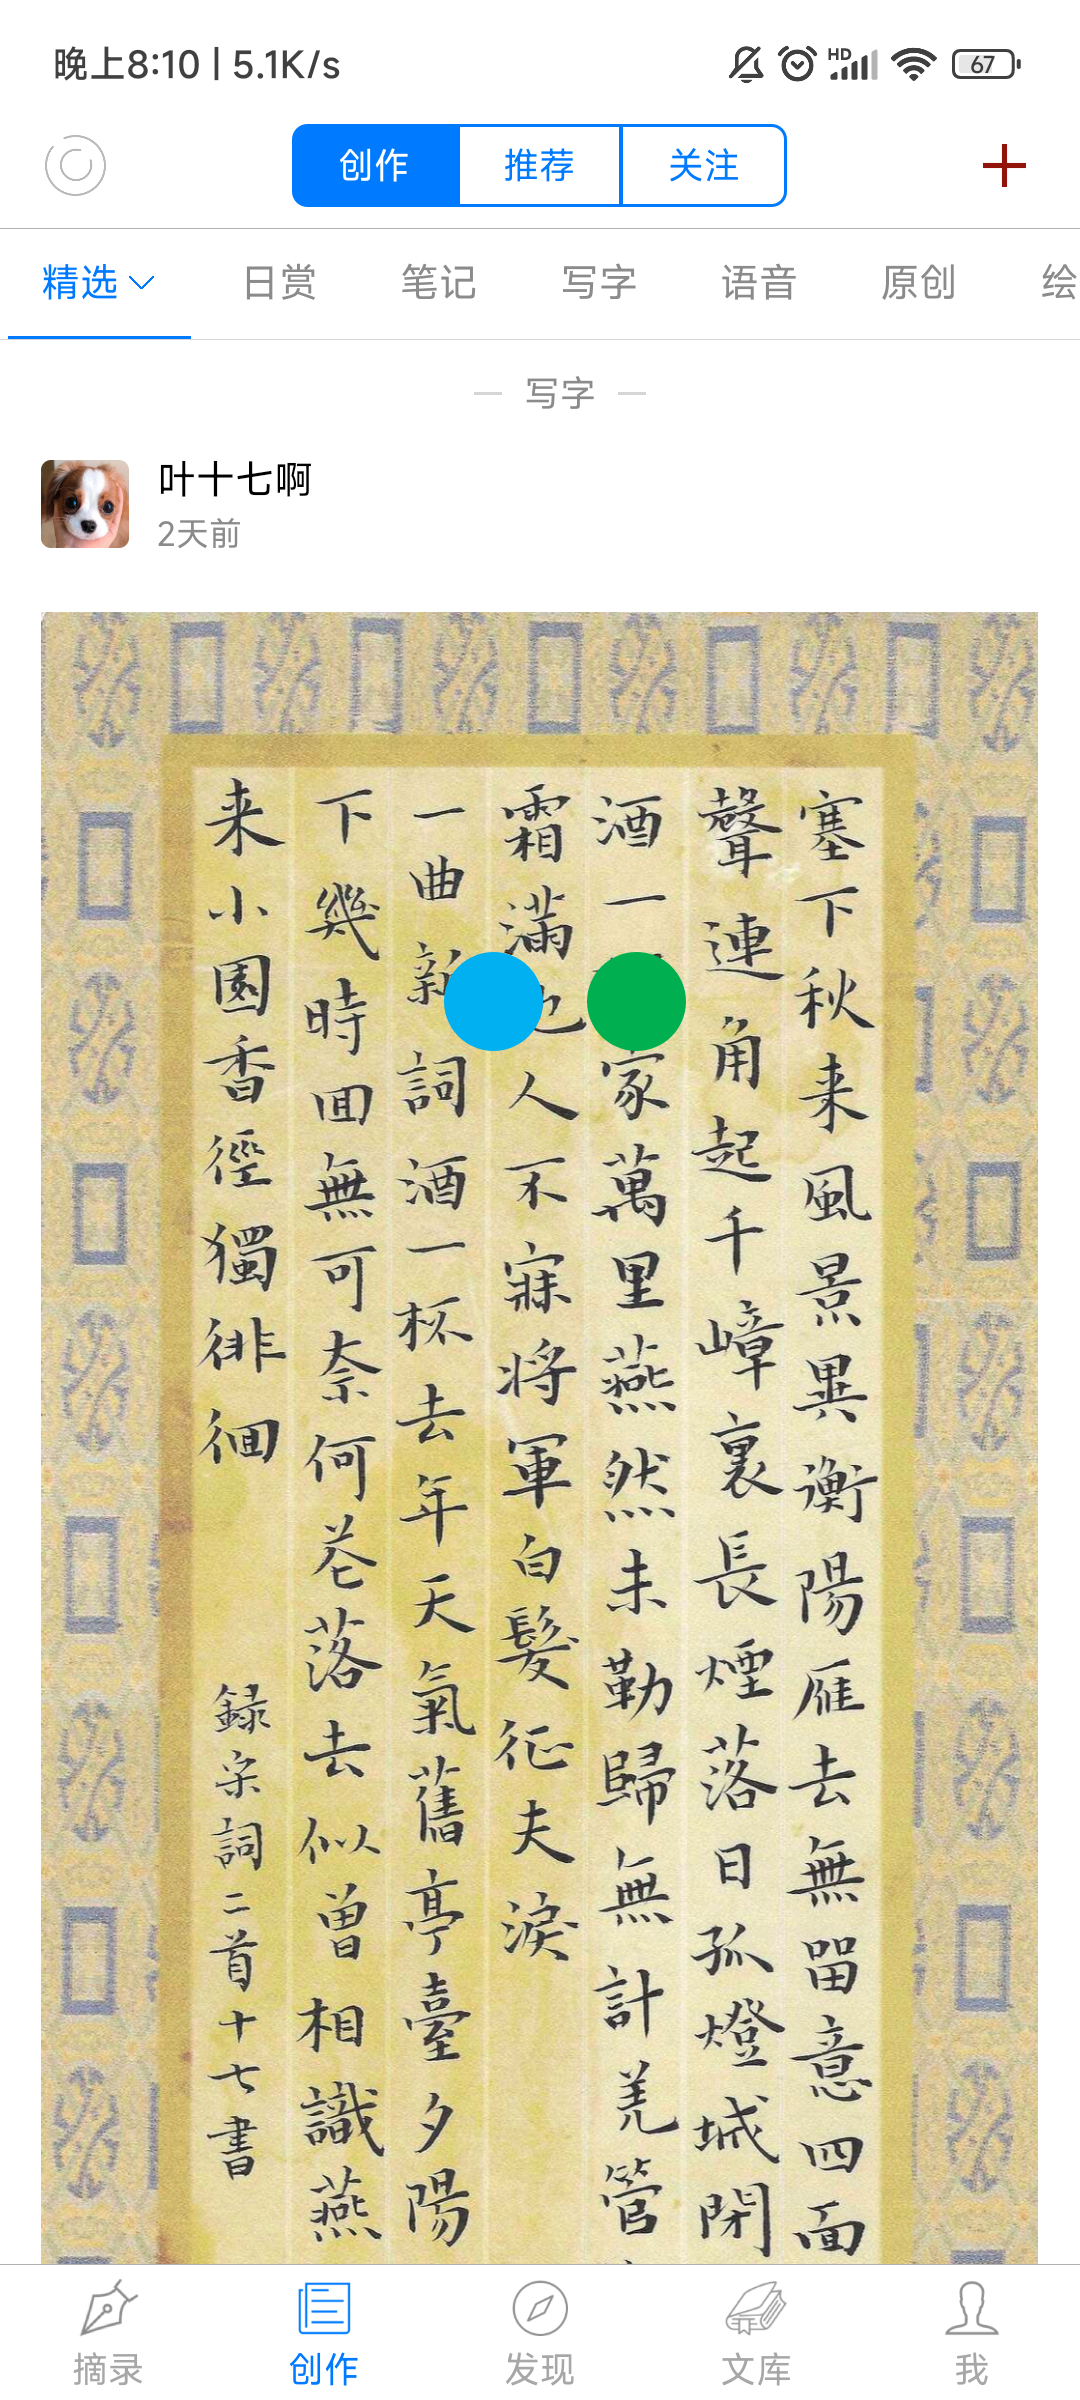 晚上8:10 | 5.1K/s
HD
67
创作
推荐
关注
精选
日赏
笔记
写字
语音
原创
绘
写字
叶十七啊
2天前
塞下秋来風景異衡陽雁去無留意四面
聲連角起千嶂裏長煙落日孤燈城閉
酒一家萬里燕然未勒歸無計羌管
霜滿人不寐将軍白髮征夫淚
一曲新詞酒一杯去年天氣舊亭臺夕陽
下幾時回無可奈何花落去似曾相識燕
来小園香徑獨徘徊
録宋詞二首十七書
摘录
创作
发现
文库
我